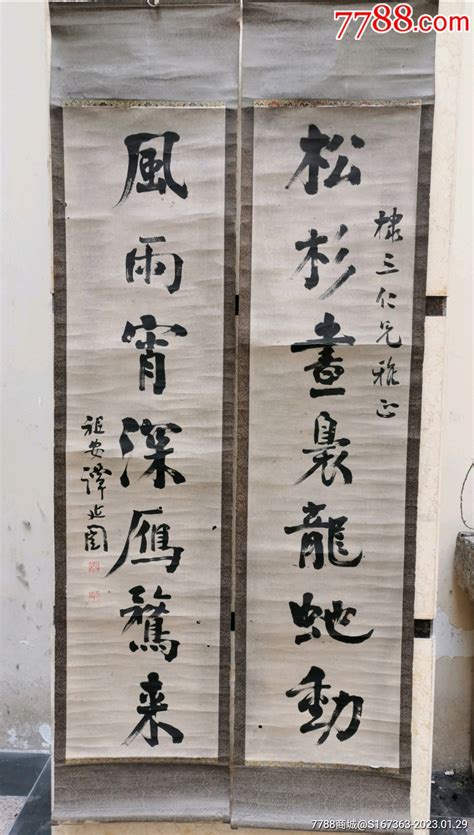 松杉晝裊龍虵動
棣三仁兄雅正
風雨宵深雁鶩来
祖安譚延闓
7788.com
7788商城@S167363-2023.01.29